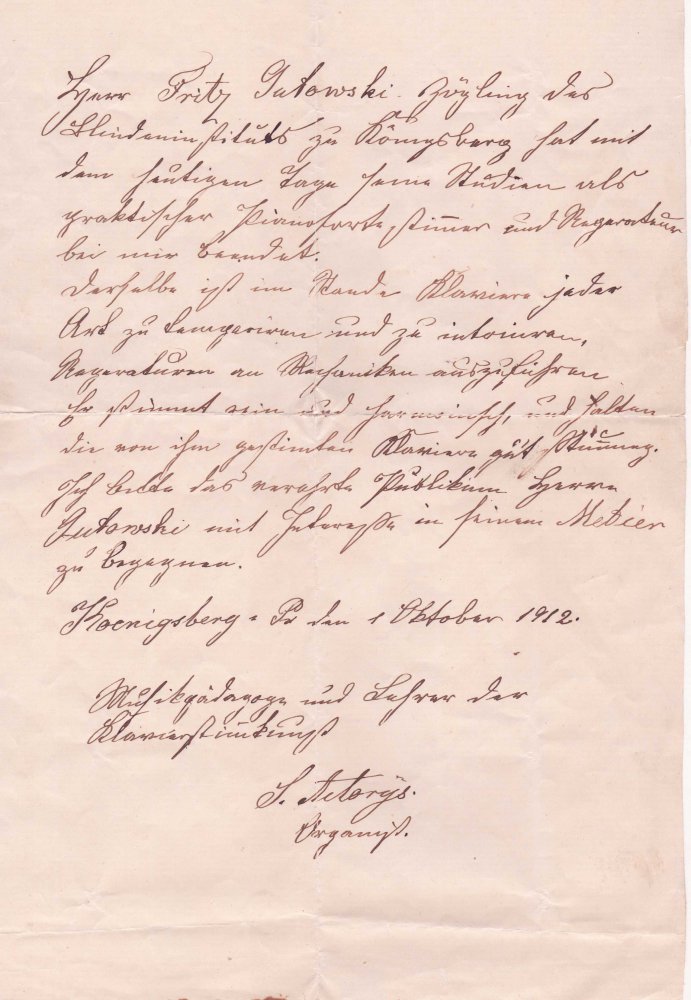 Herr Fritz Gutowski. Zögling des
Blindeninstituts zu Königsberg hat mit
dem heutigen Tage seine Studien als
praktischer Pianofortestimmer und Reperateur
bei mir beendet.
Derselbe ist im Stande Klaviere jeder
Art zu temperiren und zu intoniren,
Reperaturen an Mechaniken auszuführen
Er stimmt rein und harmonisch, und halten
die von ihm gestimten Klaviere gut Stimmung.
Ich bitte das verehrte Publikum Herrn
Gutowski mit Interesse in seinem Metier
zu begegnen.
Koenigsberg Pr den 1 Oktober 1912.
Musikpädagoge und Lehrer der
Klavierstimkunst
Organist.